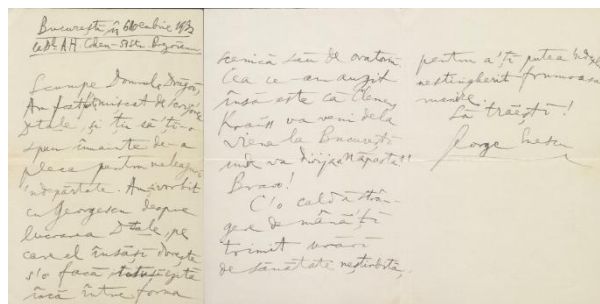 București 6 Octombrie 1932
Scumpe Domnule Drăgoi,
Am fost mișcat de scrisoarea
D-tale, și țiu să ți-o
spun înainte de-a
pleca pentru meleaguri
'ndepărtate. Am vorbit
cu Georgescu despre
lucrarea D-tale, pe
care el însăși dorește
s'o facă
încă între forma
scenică sau de oratoriu.
Cea ce-am auzit
însă este că Clemens
Krauss va veni dela
Viena la București
unde va dirija Năpasta!!
Bravo!
C'o caldă strân-
gere de mână 'ți
trimit urări
de sănătate neștirbită,
pentru a'ți putea 'ndeplini
nestingherit frumoasa
menire.
Să trăești!
George Enescu